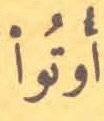 أُوتُوا۟